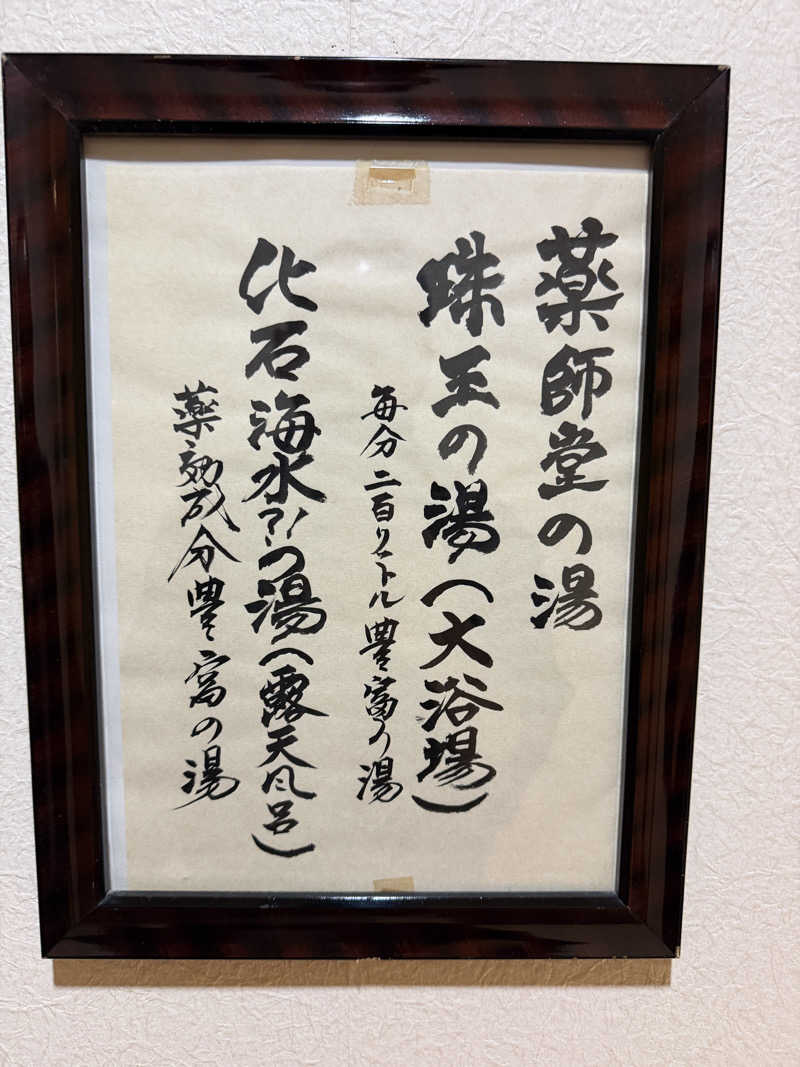 薬師堂の湯
珠玉の湯(大浴場)
毎分二百リットル豊富の湯
化石海水?!の湯(露天风呂)
薬効成分豊富の湯